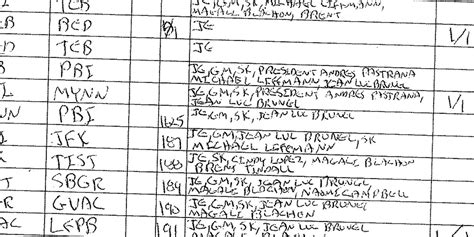 I TEB JE, GM, SK, MICHAEL LIFFMANN,
MAGALI BLACHON, BRENT
R BED JE 1/1
D TEB JE
PBI JE, GM, SK, PRESIDENT ANDRES PASTRANA
MICHAEL LIFFMANN, JEAN LUC BRUNEL
I MYNN JE, GM, SK, PRESIDENT ANDRES PASTRANA, 1/1
JEAN LUC BRUNEL
NN PBI 165 JE, GM, SK, JEAN LUC BRUNEL
I JFK 187 JE, GM, JEAN LUC BRUNEL, SK
MICHAEL LIFFMANN
K TIST 188 JE, SK, CINDY LOPEZ, MAGALI BLACHON
BRENT TINDALL
T SBGR 189 JE, GM, SK, JEAN LUC BRUNEL
MAGALI BLACHON, NAOMI CAMPBELL
R GVAC 190 JE, GM, SK, JEAN LUC BRUNEL
MAGALI BLACHON
AC LEPR 191 JE, GM, SK, JEAN LUC BRUNEL
MAGALI BLACHON